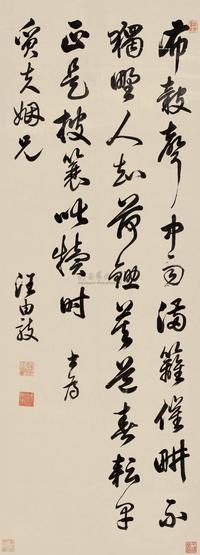 布穀聲中雨滿籬催耕不
獨野人知荷鋤莫道春耘早
正是披蓑叱犢時 書為
賓夫姻兄
汪由敦